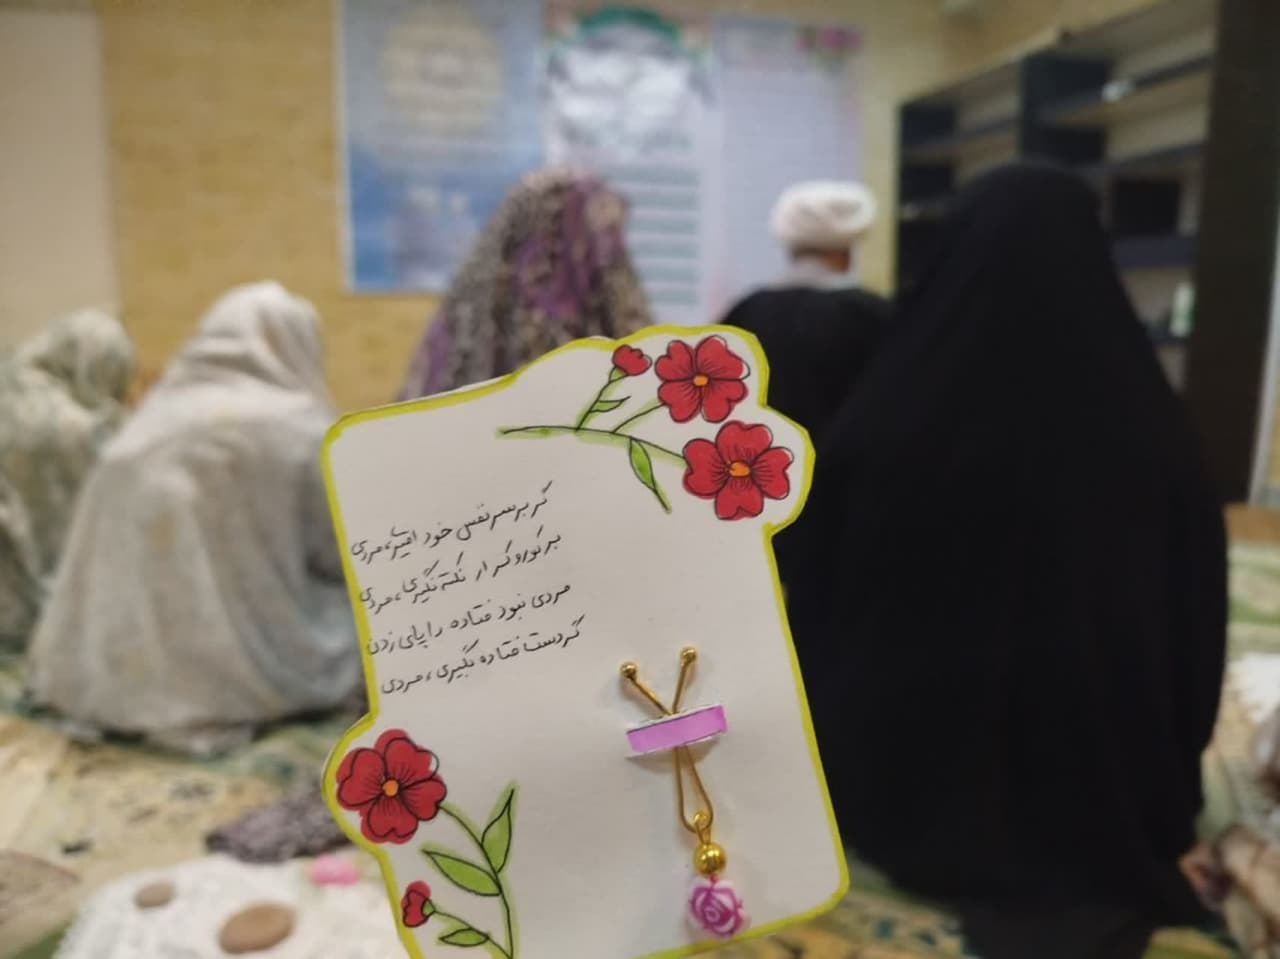 گر بر سر نفس خود امیری، مردی
بر کور و کر ار نکته نگیری، مردی
مردی نبود فتاده را پای زدن
گر دست فتاده بگیری، مردی